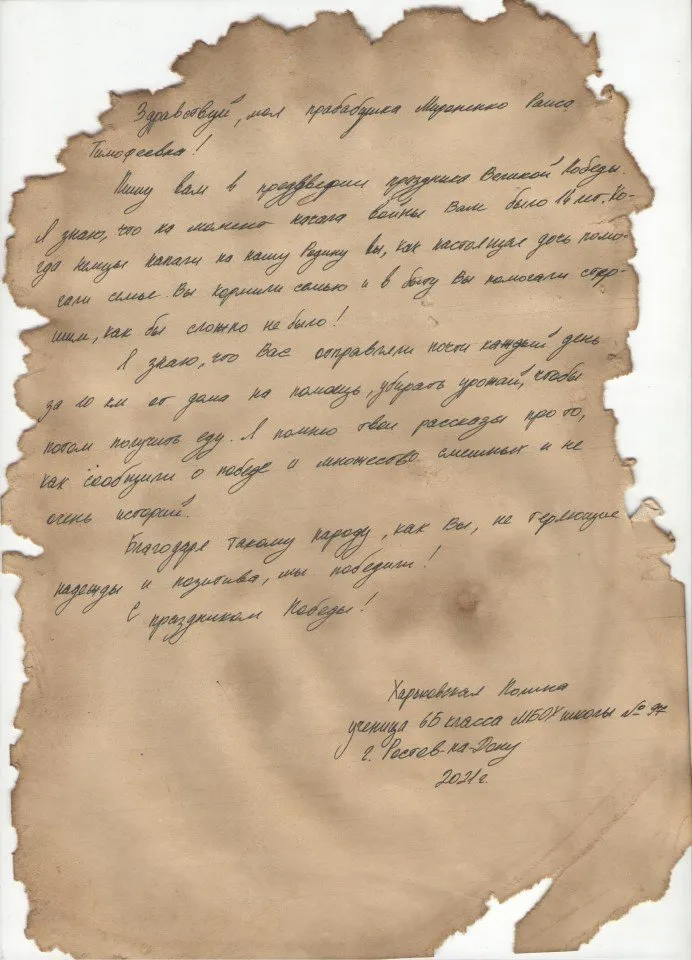 Здравствуй, моя прабабушка Мироненко Раиса
Тимофеевна!
Пишу вам в преддверии праздника Великой Победы.
Я знаю, что на момент начала войны Вам было 14 лет. Ко-
гда немцы напали на нашу Родину вы, как настоящая дочь помо-
гали семье. Вы кормили семью и в быту Вы помогали стар-
шим, как бы сложно не было!
Я знаю, что Вас отправляли почти каждый день
за 10 км от дома на помощь, убирать урожай, чтобы
потом получить еду. Я помню твои рассказы про то,
как сообщили о победе и множество смешных и не
очень историй.
Благодаря такому народу, как Вы, не теряющие
надежды и позитива, мы победили!
С праздником Победы!
Харьковская Полина
ученица 6Б класса МБОУ школы № 97
г. Ростов-на-Дону
2021г.